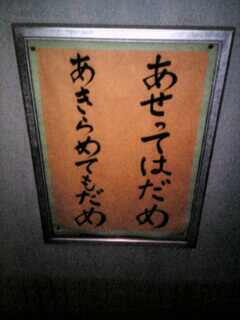 あせってはだめ
あきらめてもだめ